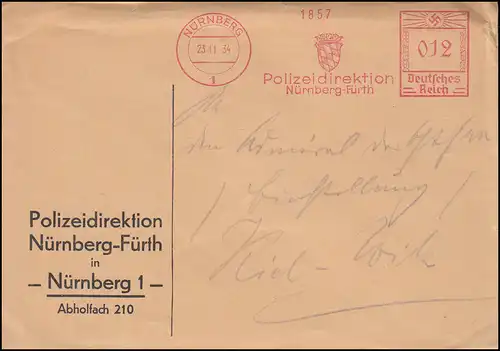 1857
NÜRNBERG
23.11.34
1
Polizeidirektion
Nürnberg-Fürth
012
Deutsches
Reich
An
den Admiral der
(Einstellung)
Kiel-Wik
Polizeidirektion
Nürnberg-Fürth
in
– Nürnberg 1 –
Abholfach 210